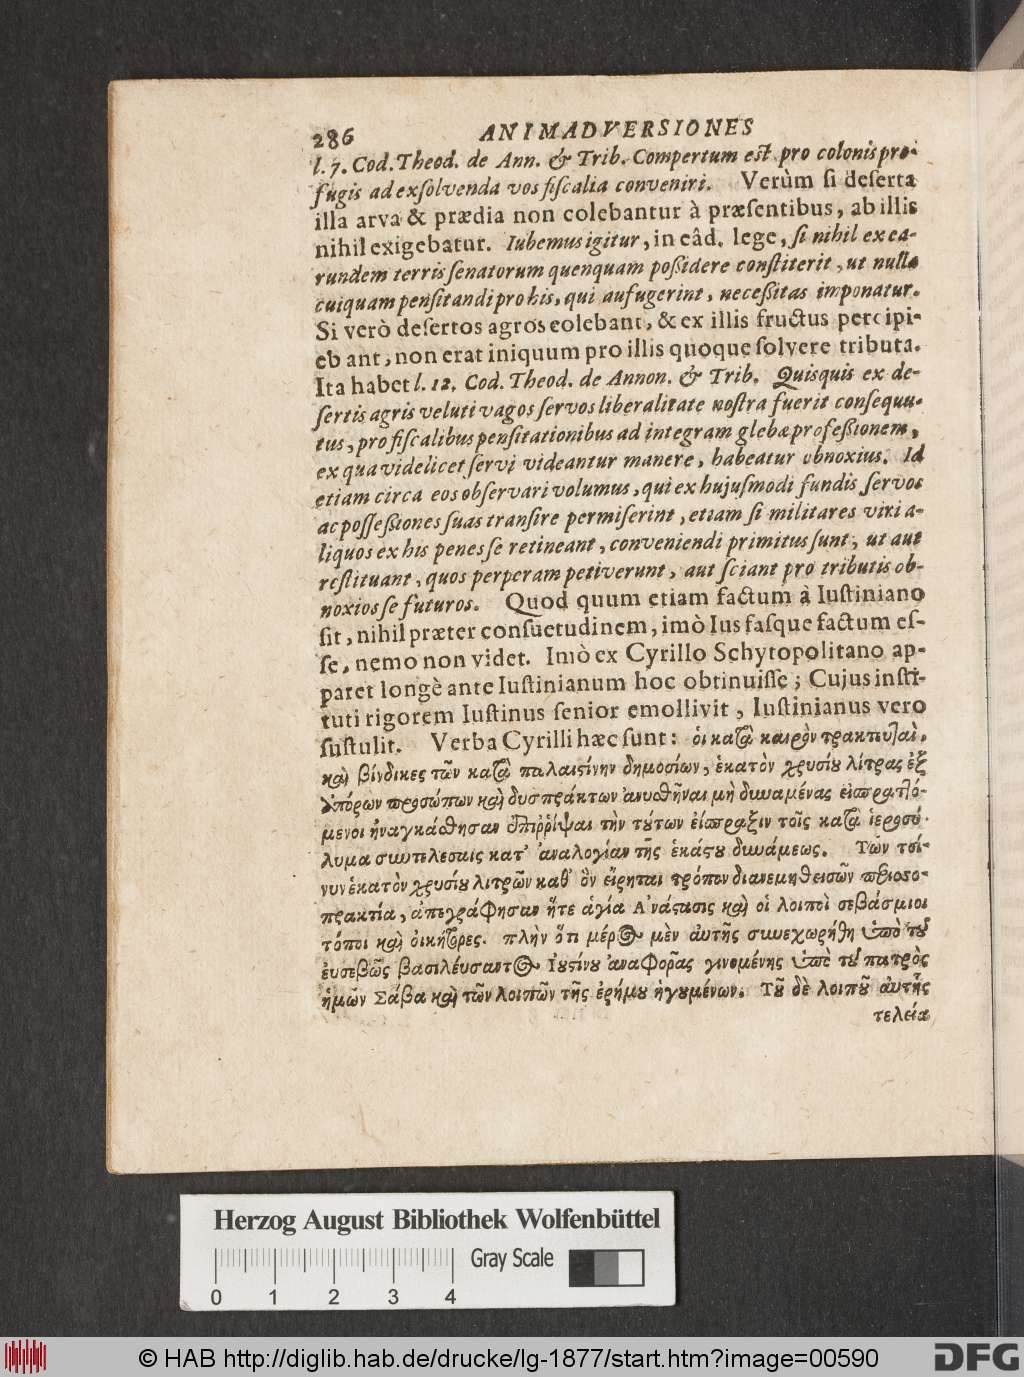 286 ANIMADVERSIONES
l. 7. Cod. Theod. de Ann. & Trib. Compertum est pro colonis pro-
fugis ad exſolvenda vos fiſcalia conveniri. Verùm ſi deſerta
illa arva & prædia non colebantur à præſentibus, ab illis
nihil exigebatur. Iubemus igitur, in eâd. lege, ſi nihil ex ea-
rundem terris ſenatorum quenquam poßidere conſtiterit, ut nulla
cuiquam penſitandi pro his, qui aufugerint, neceßitas imponatur.
Si verò deſertos agros eolebant, & ex illis fructus percipi-
eb ant, non erat iniquum pro illis quoque ſolvere tributa.
Ita habet l. 12. Cod. Theod. de Annon. & Trib. Quisquis ex de-
ſertis agris veluti vagos ſervos liberalitate noſtra fuerit conſequu-
tus, pro fiſcalibus penſitationibus ad integram glebæ profeßionem,
ex qua videlicet ſervi videantur manere, habeatur obnoxius. Id
etiam circa eos obſervari volumus, qui ex hujuſmodi fundis ſervos
ac poſſeßiones ſuas tranſire permiſerint, etiam ſi militares viri a-
liquos ex his penes ſe retineant, conveniendi primitus ſunt, ut aut
reſtituant, quos perperam petiverunt, aut ſciant pro tributis ob-
noxios ſe futuros. Quod quum etiam factum à Iuſtiniano
ſit, nihil præter conſuetudinem, imò Ius faſque factum eſ-
ſe, nemo non videt. Imò ex Cyrillo Schytopolitano ap-
paret longè ante Iuſtinianum hoc obtinuiſſe; Cujus inſti-
tuti rigorem Iuſtinus ſenior emollivit, Iuſtinianus vero
ſuſtulit. Verba Cyrilli hæc ſunt: οἱ κατὰ καιρὸν τρακτευταὶ,
καὶ βίνδικες τῶν κατὰ παλαιςίνην δημοσίων, ἑκατὸν χρυσίου λίτρας ἐξ
ἀπόρων προσώπων καὶ δυσπράκτων ἀνυσθῆναι μὴ δυναμένας εἰσπραττό-
μενοι ἠναγκάσθησαν ἐπιῤῥίψαι τὴν τούτων εἴσπραξιν τοῖς κατὰ ἱεροσό-
λυμα συντελεσταῖς κατ' ἀναλογίαν τῆς ἑκάςου δυνάμεως. Τῶν τοί-
νυν ἑκατὸν χρυσίου λιτρῶν καθ' ὃν εἴρηται τρόπον διανεμηθεισῶν περισσο-
πρακτία, ἀπεγράφησαν ἥτε ἁγία Ἀνάςασις καὶ οἱ λοιποὶ σεβάσμιοι
τόποι καὶ οἰκήτορες. πλὴν ὅτι μέρος μὲν αὐτῆς συνεχωρήθη ὑπὸ τοῦ
εὐσεβῶς βασιλεύσαντος Ἰουςίνου ἀναφορᾶς γινομένης ὑπὸ τοῦ πατρὸς
ἡμῶν Σάβα καὶ τῶν λοιπῶν τῆς ἐρήμου ἡγουμένων. Τοῦ δὲ λοιποῦ αὐτῆς
τελεία
Herzog August Bibliothek Wolfenbüttel
Gray Scale
0 1 2 3 4
© HAB http://diglib.hab.de/drucke/lg-1877/start.htm?image=00590
DFG